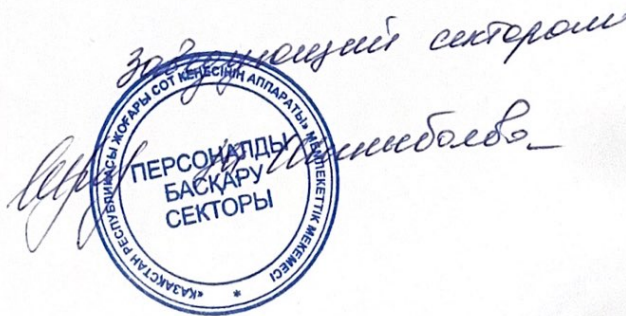 Заведующий сектором
«ҚАЗАҚСТАН РЕСПУБЛИКАСЫ ЖОҒАРЫ СОТ КЕҢЕСІНІҢ АППАРАТЫ» МЕМЛЕКЕТТІК МЕКЕМЕСІ *
ПЕРСОНАЛДЫ
БАСҚАРУ
СЕКТОРЫ